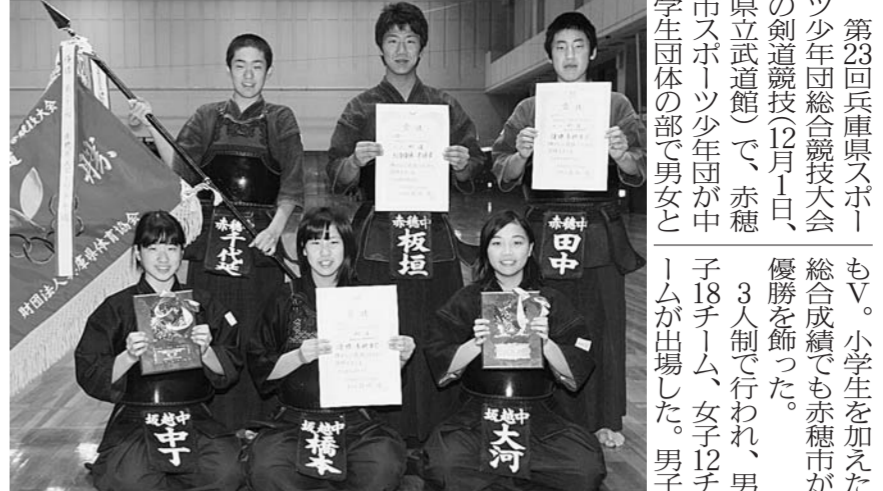 第23回兵庫県スポー
ツ少年団総合競技大会
の剣道競技(12月1日、
県立武道館)で、赤穂
市スポーツ少年団が中
学生団体の部で男女と
もV。小学生を加えた
総合成績でも赤穂市が
優勝を飾った。
3人制で行われ、男
子18チーム、女子12チ
ームが出場した。男子
勝
財団法人 庫県体育協会
赤穂中
千代
赤穂中
板垣
赤穂中
田中
坂越中
中丁
坂越中
橋本
坂越中
大河